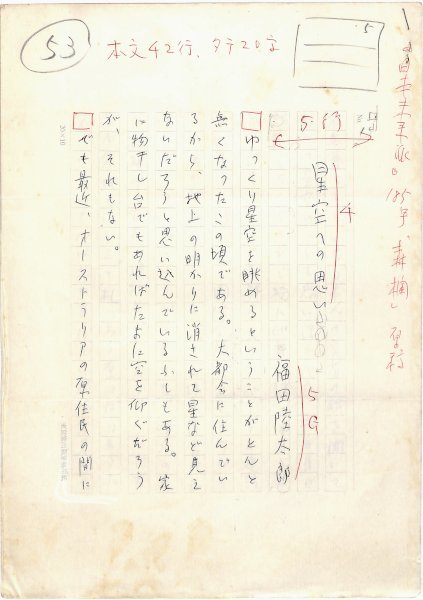 53
本文42行、タテ20字
5
5行
星空への思い
4
福田陸太郎
5G
ゆっくり星空を眺めるということがとんと
無くなったこの頃である。大都会に住んでい
るから、地上の明かりに消されて星など見え
ないだろうと思い込んでいるふしもある。家
に物干し台でもあればたまに空を仰ぐだろう
が、それもない。
でも最近、オーストラリアの原住民の間に
20×10